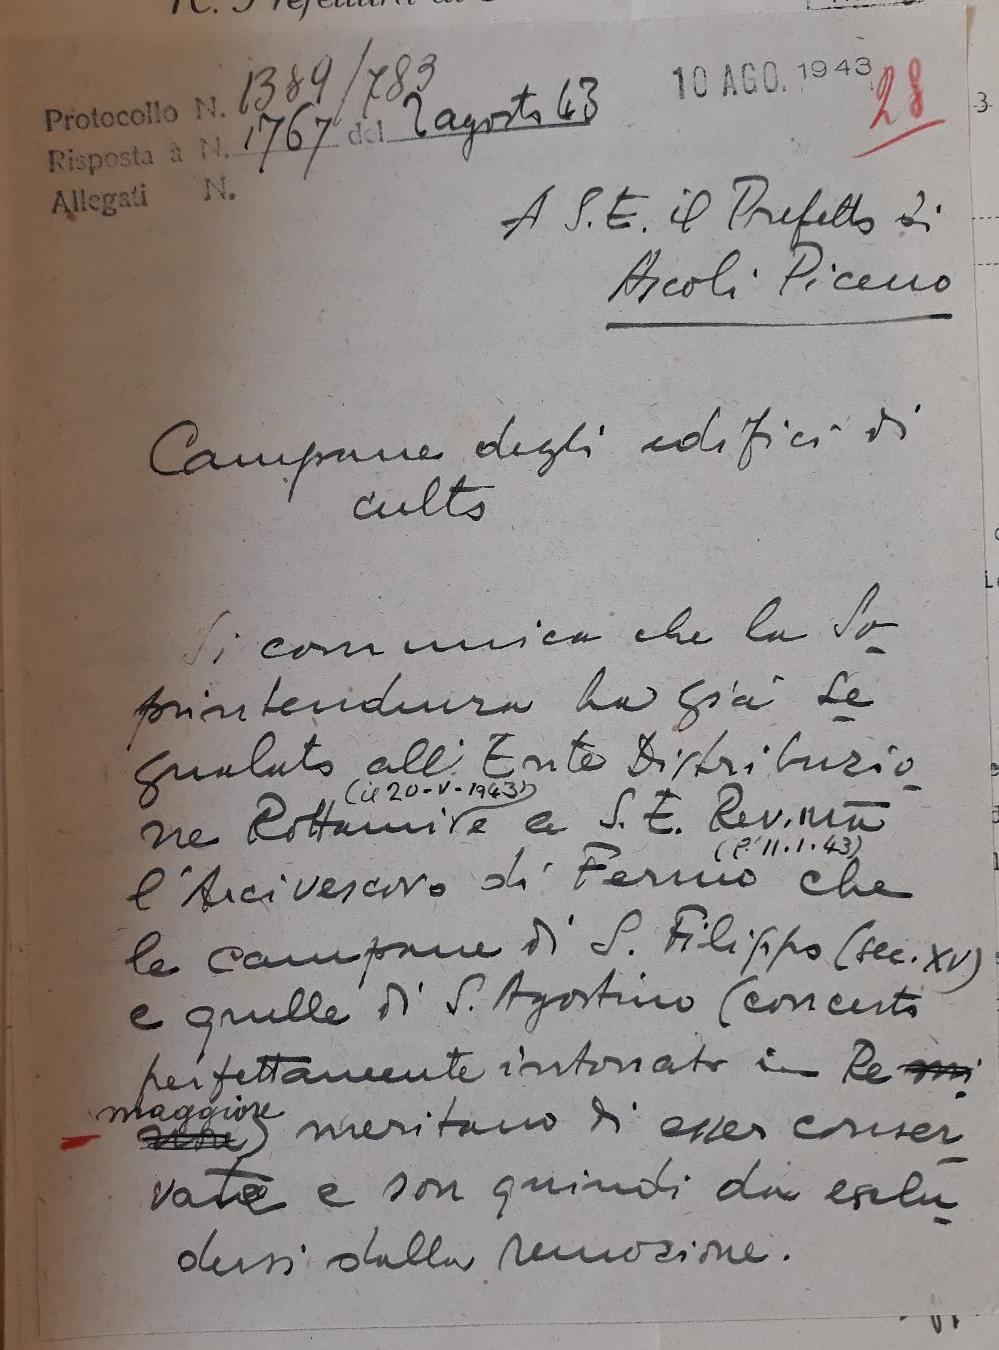 Protocollo N. 1389/783
Risposta a N. 1767 del 2 agosto 43
Allegati N.
10 AGO. 1943
28
A S.E. il Prefetto di
Ascoli Piceno
Campane degli edifici di
culto
Si comunica che la So
printendenza ha già se
gnalato all'Ente Distribuzio
(il 20-V-1943)
ne Rottami e a S.E. Rev.ma
(l'11.1.43)
l'Arcivescovo di Fermo che
le campane di S. Filippo (sec. XV)
e quelle di S. Agostino (concerto
perfettamente intonato in Re mi
maggiore
) meritano di esser conser
vate e son quindi da esclu
dersi dalla remozione.